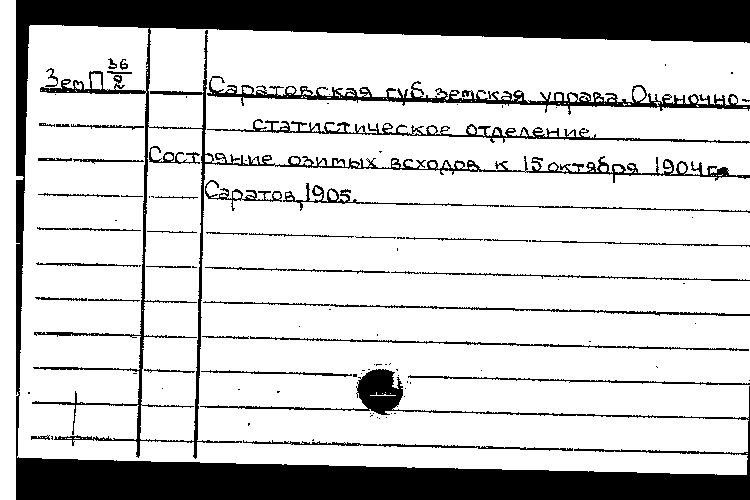 Зем П 36/2
Саратовская губ. земская управа. Оценочно-
статистическое отделение.
Состояние озимых всходов к 15 октября 1904 г.
Саратов, 1905.